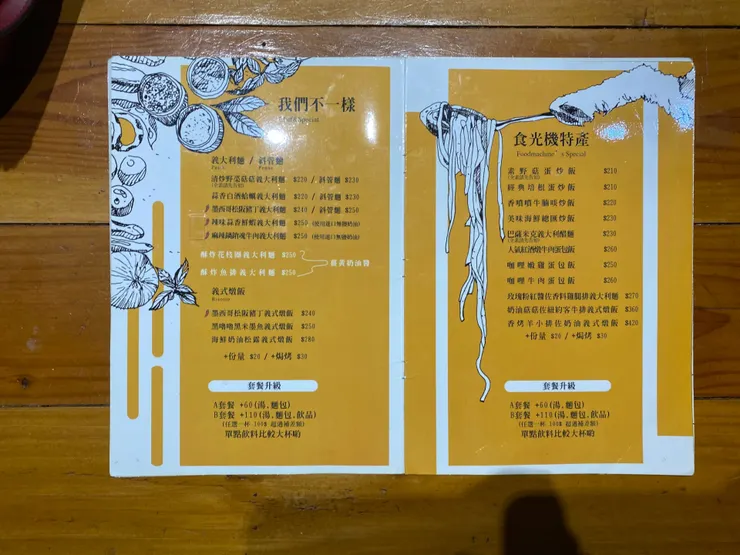 我們不一樣
Special
義大利麵 / 斜管麵
Penne
清炒野菜菇菇義大利麵 $220 / 斜管麵 $230
(全素請先告知)
蒜香白酒蛤蠣義大利麵 $220 / 斜管麵 $230
墨西哥松阪豬丁義大利麵 $240 / 斜管麵 $250
辣味蒜香鮮蝦義大利麵 $250 (使用進口無鹽奶油)
麻辣鍋嫩塊牛肉義大利麵 $250 (使用進口無鹽奶油)
酥炸花枝圈義大利麵 $250
薑黃奶油醬
酥炸魚排義大利麵 $250
義式燉飯
Risotto
墨西哥松阪豬丁義式燉飯 $240
黑嚕嚕黑米墨魚義式燉飯 $250
海鮮奶油松露義式燉飯 $280
+份量 $20 / +焗烤 $30
套餐升級
A套餐 +60(湯,麵包)
B套餐 +110(湯,麵包,飲品)
(任選一杯 100$ 超過補差額)
單點飲料比較大杯喲
食光機特產
Foodmachine's Special
素野菇蛋炒飯 $210
(全素請先告知)
經典培根蛋炒飯 $210
香噴噴牛腩啖炒飯 $220
美味海鮮總匯炒飯 $230
巴薩米克義大利醋麵 $230
(全素請先告知)
人氣紅酒燉牛肉蛋包飯 $260
咖哩嫩雞蛋包飯 $250
咖哩牛肉蛋包飯 $260
玫瑰粉紅醬佐香料雞腿排義大利麵 $270
奶油菇菇佐紐約客牛排義式燉飯 $360
香烤羊小排佐奶油義式燉飯 $420
+份量 $20 / +焗烤 $30
套餐升級
A套餐 +60(湯,麵包)
B套餐 +110(湯,麵包,飲品)
(任選一杯 100$ 超過補差額)
單點飲料比較大杯喲